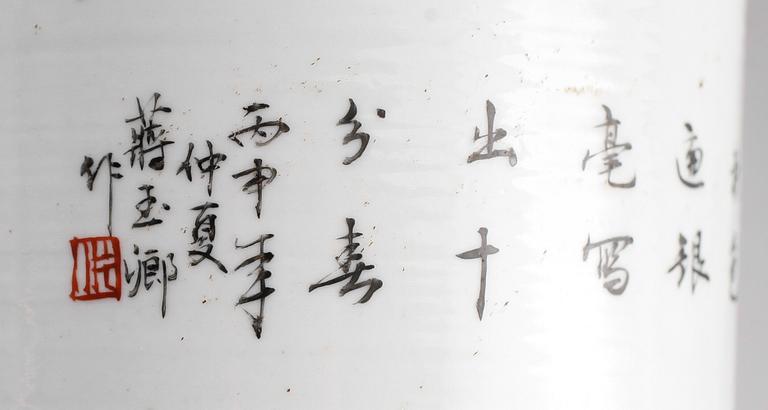 銀
毫写
出十
分春
丙申年
仲夏
蒋玉卿
作